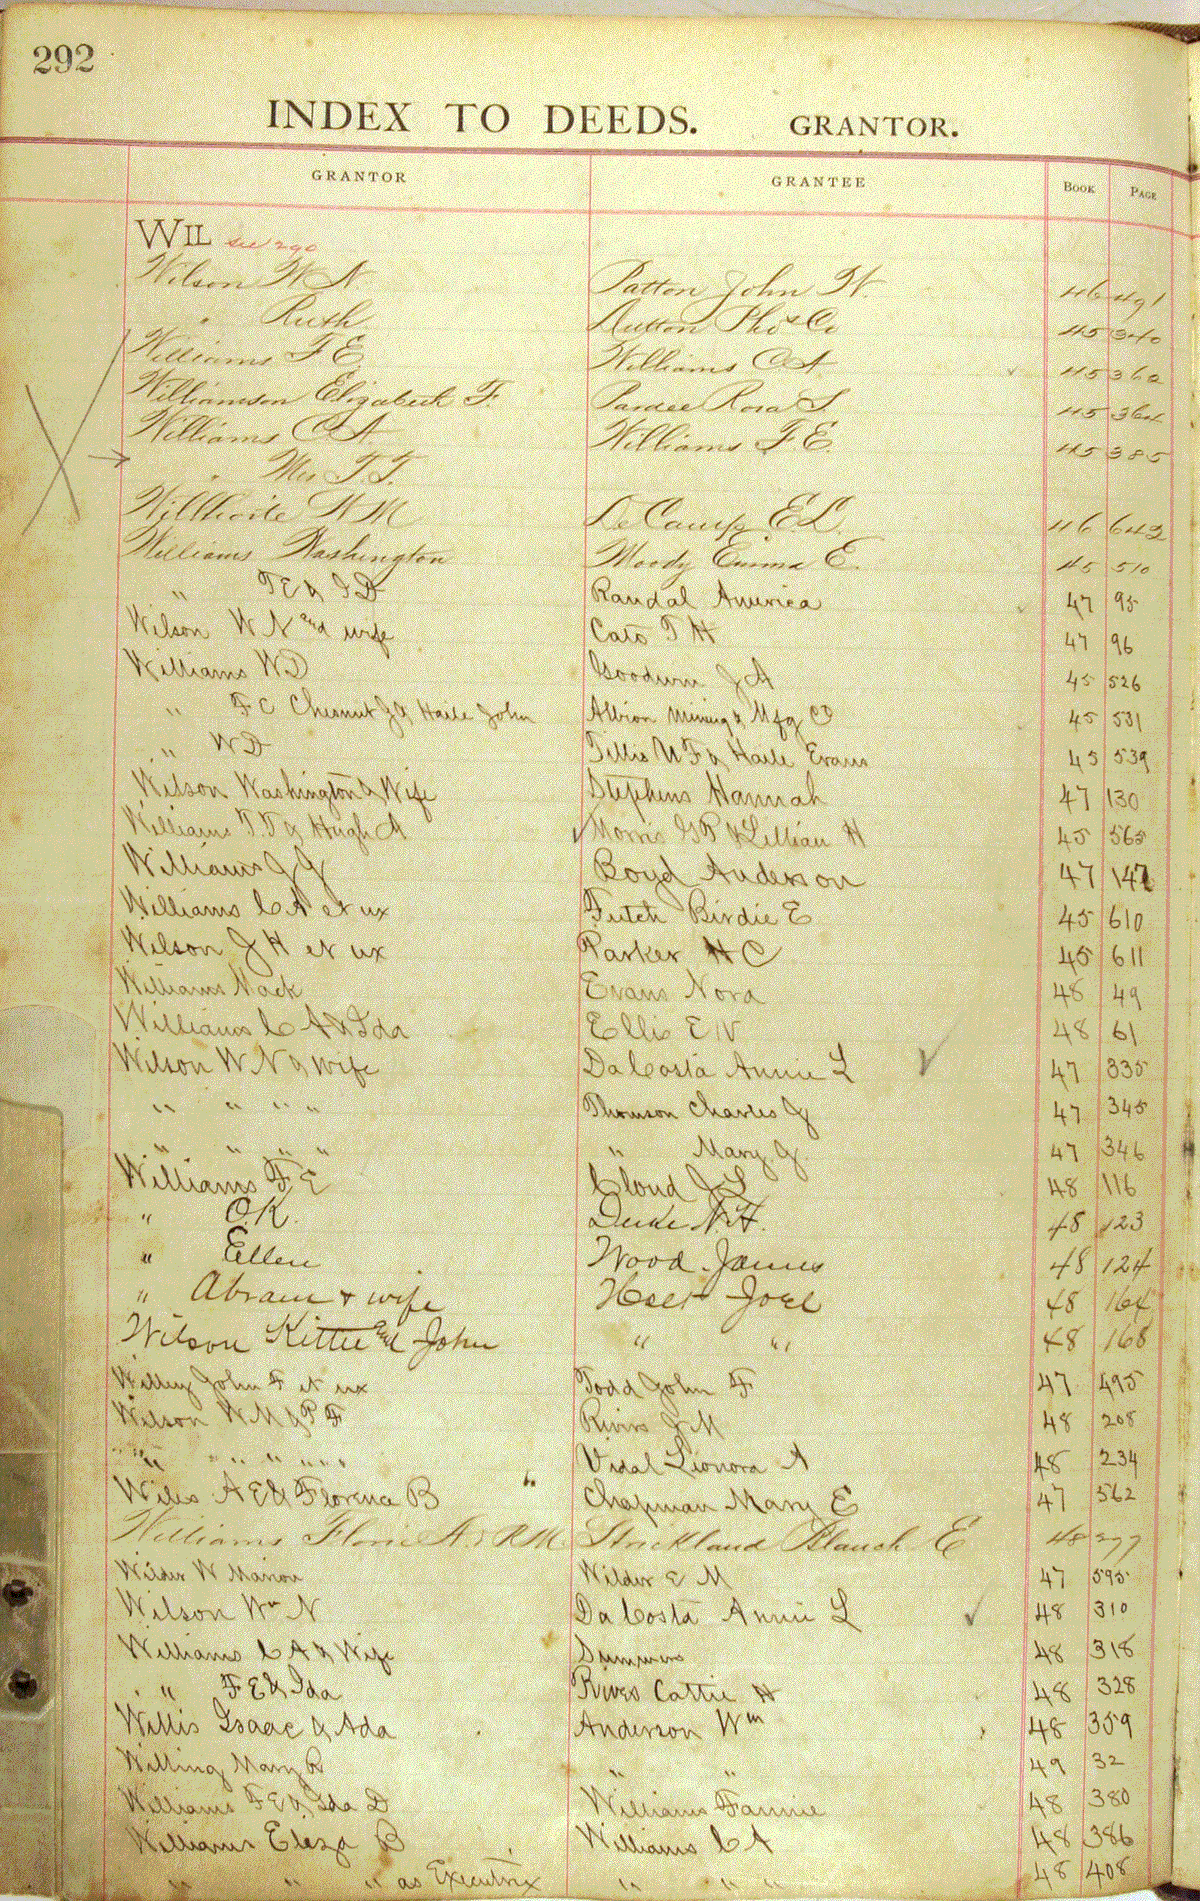 292
INDEX TO DEEDS. GRANTOR.
GRANTOR GRANTEE BOOK PAGE
WIL see 290
Wilson W. N. Patton John W. 46 491
" Ruth Dutton Phos Co 45 340
Williams F E Williams C A 45 362
Williamson Elizabeth F. Pardee Rosa S. 45 364
Williams C A Williams F. E. 45 385
" Mrs T. T.
Willhoite W M DeCamp E L. 46 643
Williams Washington Moody Emma E. 45 510
" F E & I D Randal America 47 95
Wilson W N and wife Cato T H 47 96
Williams W D Goodwin J A 45 526
" F C Chesnut J & Haile John Albion Mining & Mfg Co 45 531
" W D Tillis W F & Haile Evans 45 539
Wilson Washington & Wife Stephens Hannah 47 130
Williams T. T & Hugh A Morris G P & Lillian H 45 565
Williams J J Boyd Anderson 47 147
Williams C A et ux Futch Birdie E 45 610
Wilson J H et ux Parker H C 45 611
Williams Mack Evans Nora 48 49
Williams C A & Ida Ellis E W 48 61
Wilson W N & wife DaCosta Annie L 47 335
" " " " Thomson Charles G 47 345
" " " " " Mary G. 47 346
Williams F, E Cloud J S 48 116
" O.K. Duke N. H. 48 123
" Ellen Wood James 48 124
" Abram & wife Holt Joel 48 164
Wilson Kittie and John " " 48 168
Willey John F et ux Todd John F 47 495
Wilson W M & P F Rivers J M 48 208
" " " " " Vidal Lionora A 48 234
Wiles A E & Florence B Chapman Mary E 47 562
Williams Florie A. & R M. Strickland Blanch E 48 277
Wilder W Marion Wilder E M 47 595
Wilson Wm N DaCosta Annie L 48 310
Williams C A & Wife Summers 48 318
" F E & Ida Rives Cattie H 48 328
Willis Isaac & Ada Anderson Wm 48 359
Willing Mary R " " 49 32
Williams F E & Ida D Williams Fannie 48 380
Williams Eliza B Williams C A 48 386
" " " as Executrix " " " 48 408